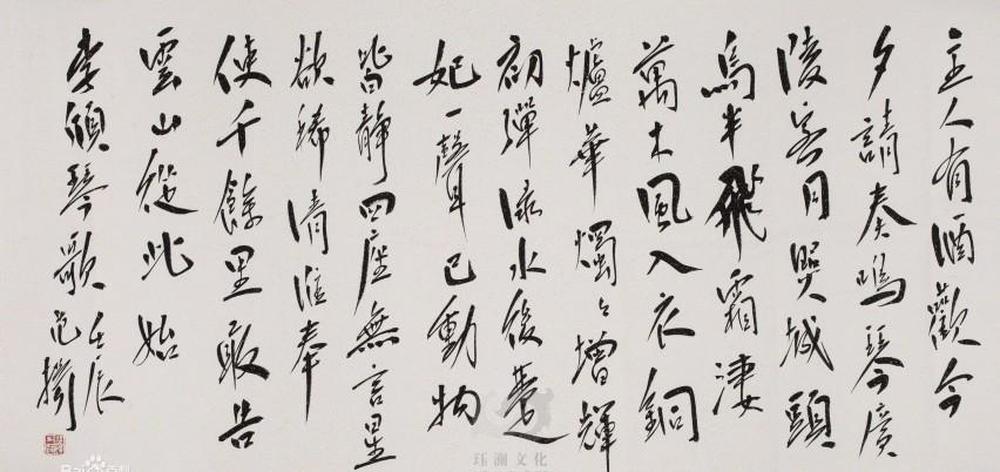 主人有酒歡今
夕請奏鳴琴廣
陵客月照城頭
烏半飛霜淒
萬木風入衣銅
爐華燭々增輝
初彈淥水後楚
妃一聲已動物
皆靜四座無言星
欲稀清淮奉
使千餘里敢告
雲山從此始
李頎琴歌
壬辰
范
文化
Bai